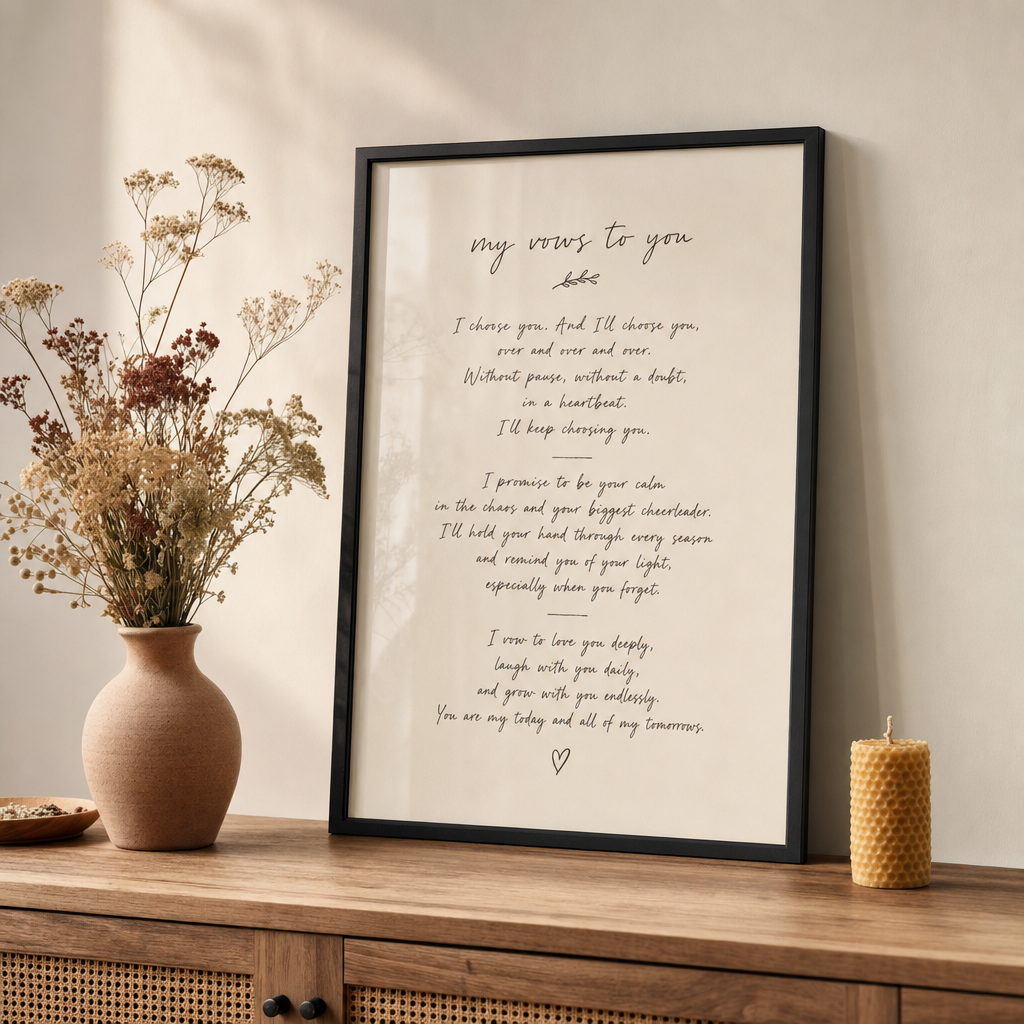 my vows to you
I choose you. And I'll choose you,
over and over and over.
Without pause, without a doubt,
in a heartbeat.
I'll keep choosing you.
I promise to be your calm
in the chaos and your biggest cheerleader.
I'll hold your hand through every season
and remind you of your light,
especially when you forget.
I vow to love you deeply,
laugh with you daily,
and grow with you endlessly.
You are my today and all of my tomorrows.